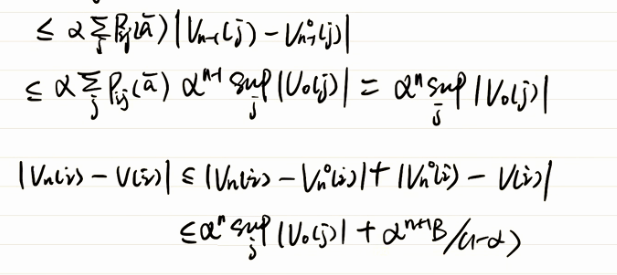 ≤ α Σ_j P_ij(ā) |V_{n-1}(j) - V^0_{n-1}(j)|
≤ α Σ_j P_ij(ā) α^{n-1} sup_j |V_0(j)| = α^n sup_j |V_0(j)|
|V_n(i) - V(i)| ≤ |V_n(i) - V_n^0(i)| + |V_n^0(i) - V(i)|
≤ α^n sup_j |V_0(j)| + α^{n+1} B/(1-α)